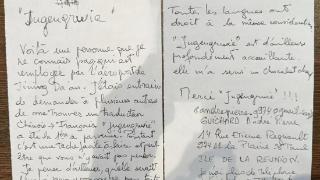 "Jugengruvia"
Voilà une personne que je
ne connais pas qui est
employée par l'aéroport de
Jining Da an. J'étais entrain
de demander à plusieurs autres
de me trouver un traduction
Chinois → Français "Jugengruvia"
a été la à parvenir. Pourtant
c'est une tache facile à faire et peut
être que vous n'avait pas
Je pense d'ailleurs, qu'elle serait
Toutes les langues ont
droit à la même considération
"Jugengruvia" est d'ailleurs
profondément accueillante
elle m'a servi un chocolat chaud
Merci "Jugengruvia" !!!
GUICHARD André Pierre
14 Rue Etienne Regnault
97411 La Plaine St Paul
ILE DE LA REUNION.
je n'ai plus de téléphone